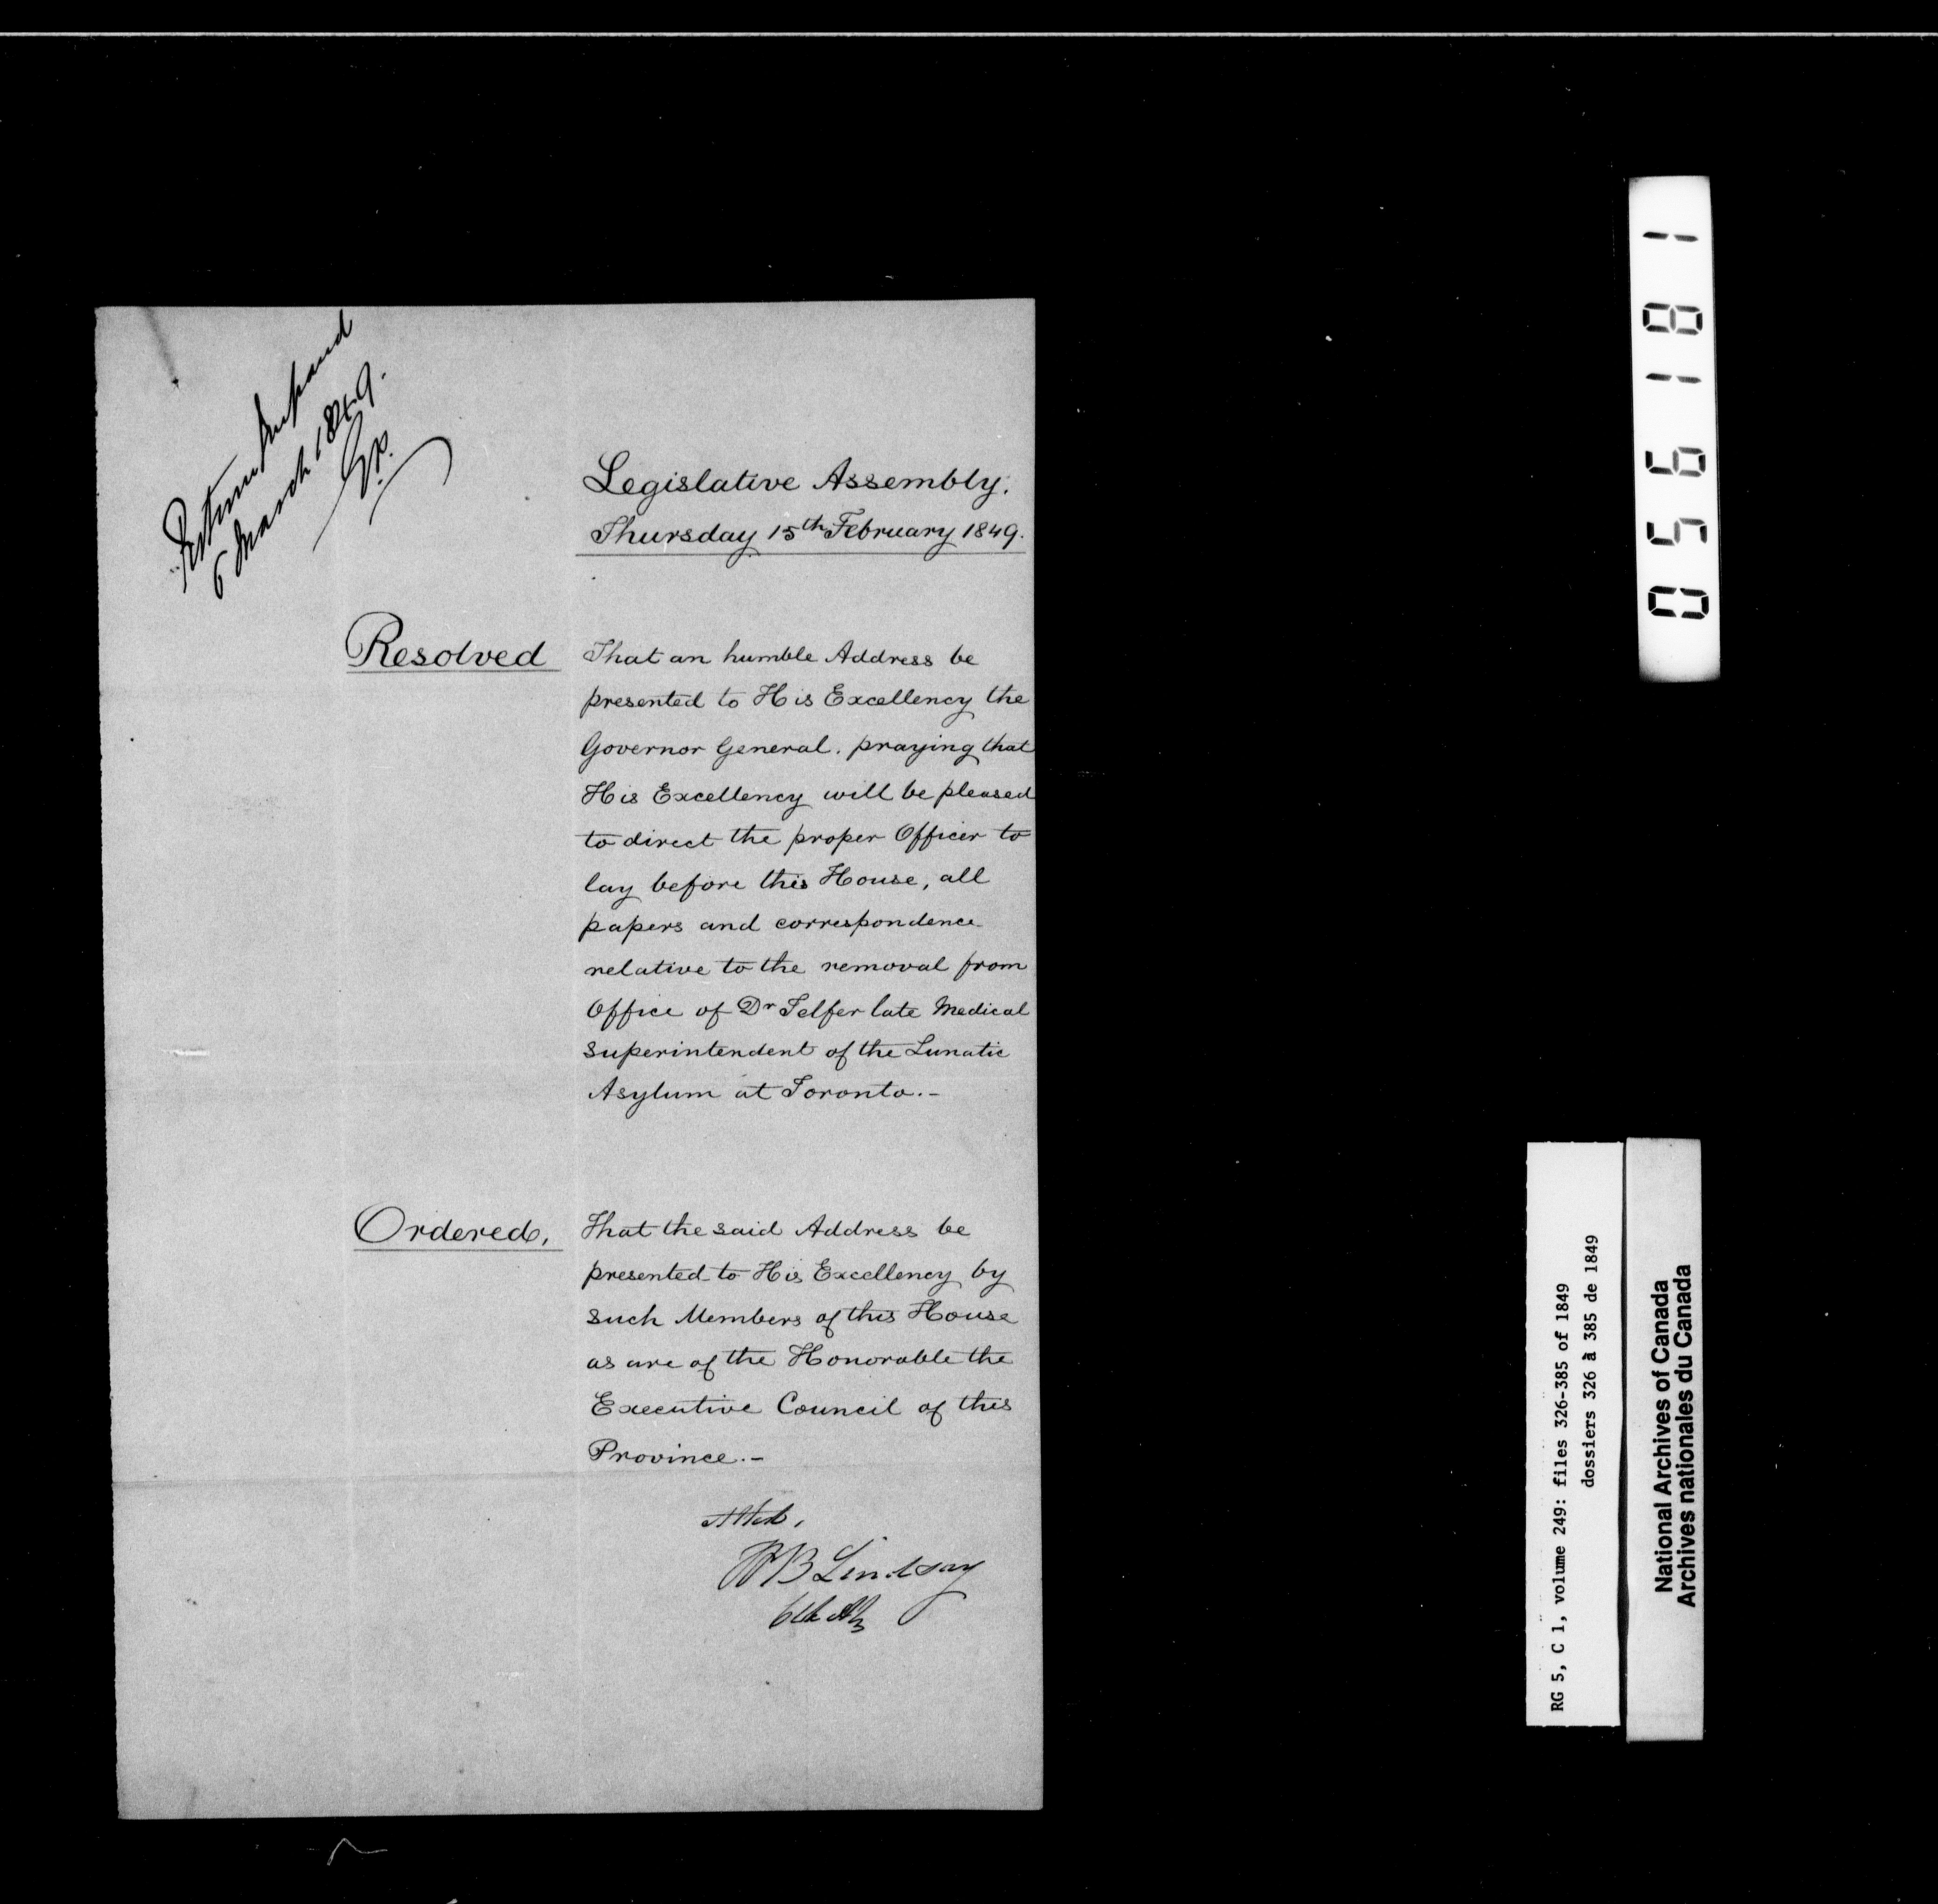 Return prepared
6 March 1849.
Legislative Assembly.
Thursday 15th February 1849.
Resolved That an humble Address be
presented to His Excellency the
Governor General. praying that
His Excellency will be pleased
to direct the proper Officer to
lay before this House, all
papers and correspondence
relative to the removal from
Office of Dr Telfer late Medical
Superintendent of the Lunatic
Asylum at Toronto.-
Ordered, That the said Address be
presented to His Excellency by
such Members of this House
as are of the Honorable the
Executive Council of this
Province.-
Attest,
WB Lindsay
Clk Assy
056181
RG 5, C 1, volume 249: files 326-385 of 1849
dossiers 326 à 385 de 1849
National Archives of Canada
Archives nationales du Canada